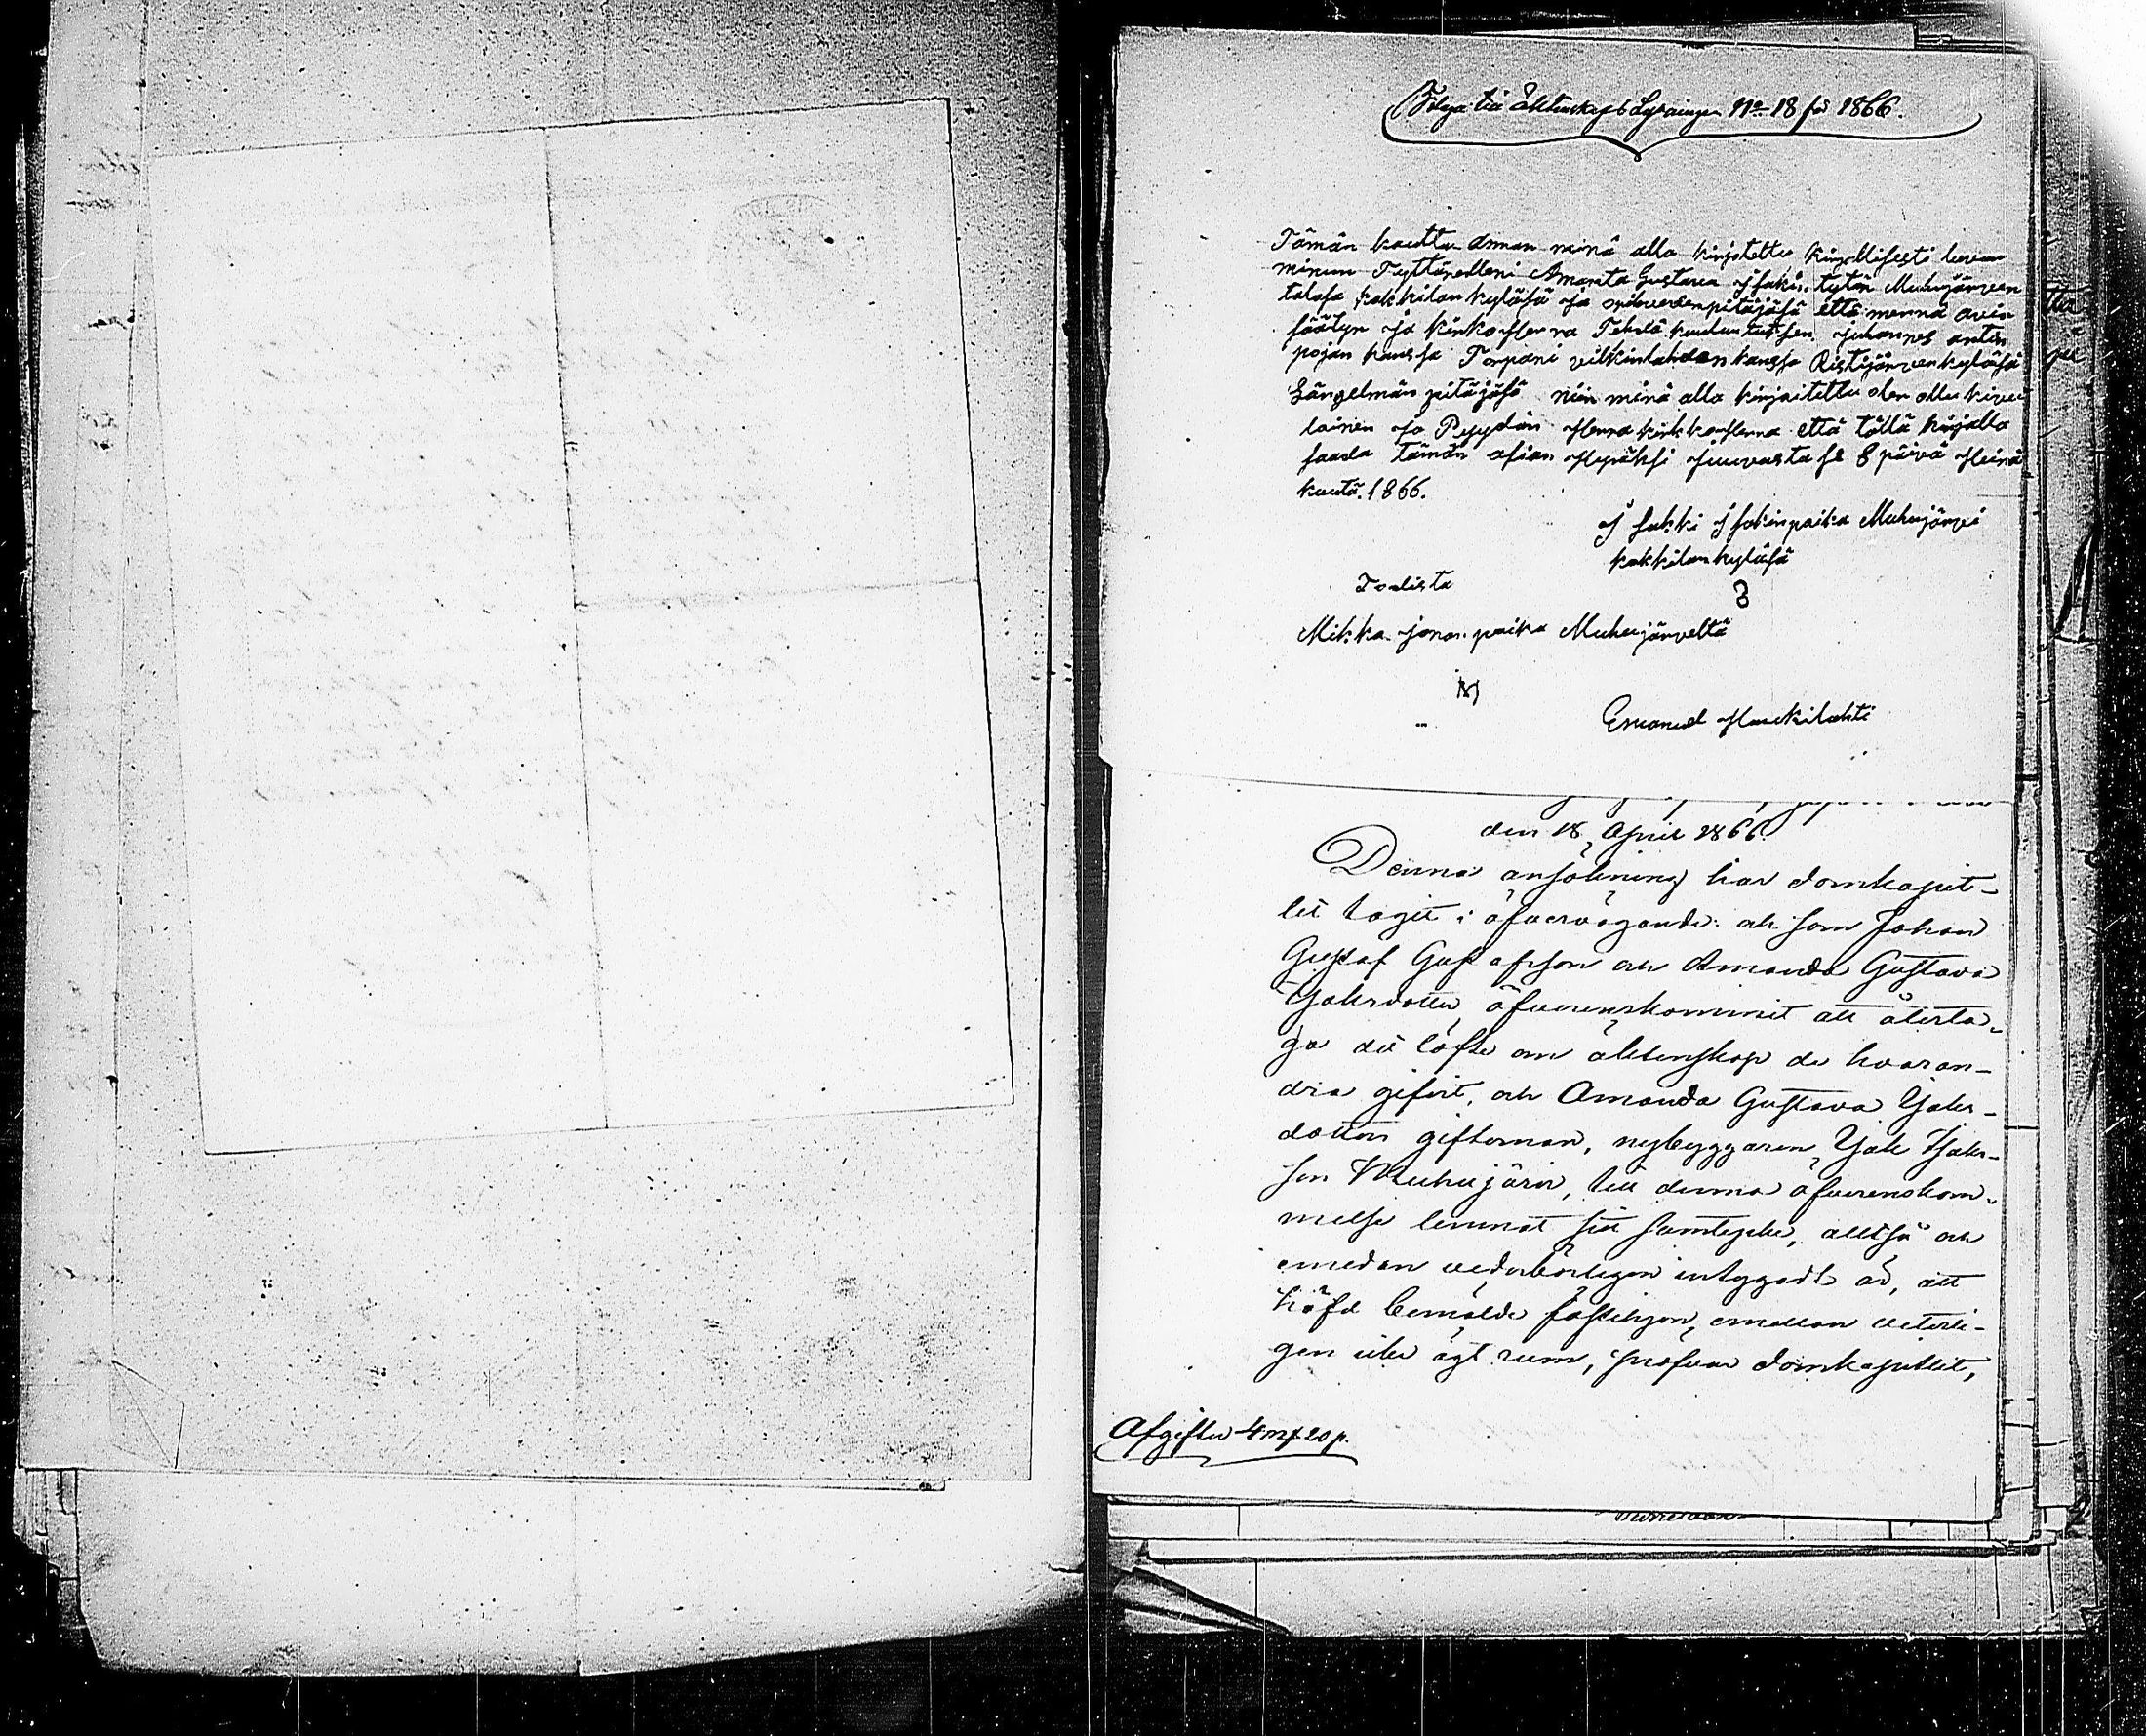 Följa till Äktenskaps Lysningen No 18 för 1866.
Tämän kautta Annan minä alla kirjotettu kirjallisesti luvan
minun Tyttärelleni Amanta Gustava Isakin tytän Muhujärven
talosa kokkilan kyläsä ja orihveden pitäjäsä että mennä avio
säätyn ja kirkoHerra Tehdä kuulutuksen Juhannes antin
pojan kanssa Torpari vilkinlahden kanssa Ristijärven kyläsä
Längelmän pitäjäsä niin minä alla kirjoitettu olen
lainen ja Pyydän Herra kirkkoHerra että tällä kirjalla
saada tämän asian Hyväksi Juuvasta se 8 päivä Heinä
kuuta. 1866.
Isakki Isakin poika Muhujärvi
kokkilan kyläsä
Todista
Mikka poika Muhujärveltä
Emanuel Haukilahti
den 18 April 1866.
Denna ansökning har domkapit-
let tagit i öfvervägande: och som Johan
Gustaf Gustafsson och Amanda Gustava
Isaksdotter öfverenskommit att återta-
ga det löfte om äktenskap de hvaran-
dra gifvit, och Amanda Gustava Isaks-
dotters giftoman, nybyggaren Isak Isaks-
son Muhujärvi, till denna öfverenskom-
melse lemnat sitt samtycke, alltså och
emedan vederbörligen intygadt är, att
häfd bemälde fästehjon emellan veterli-
gen icke ägt rum, pröfvar domkapitlet,
Afgifter 4 mk 20 p.